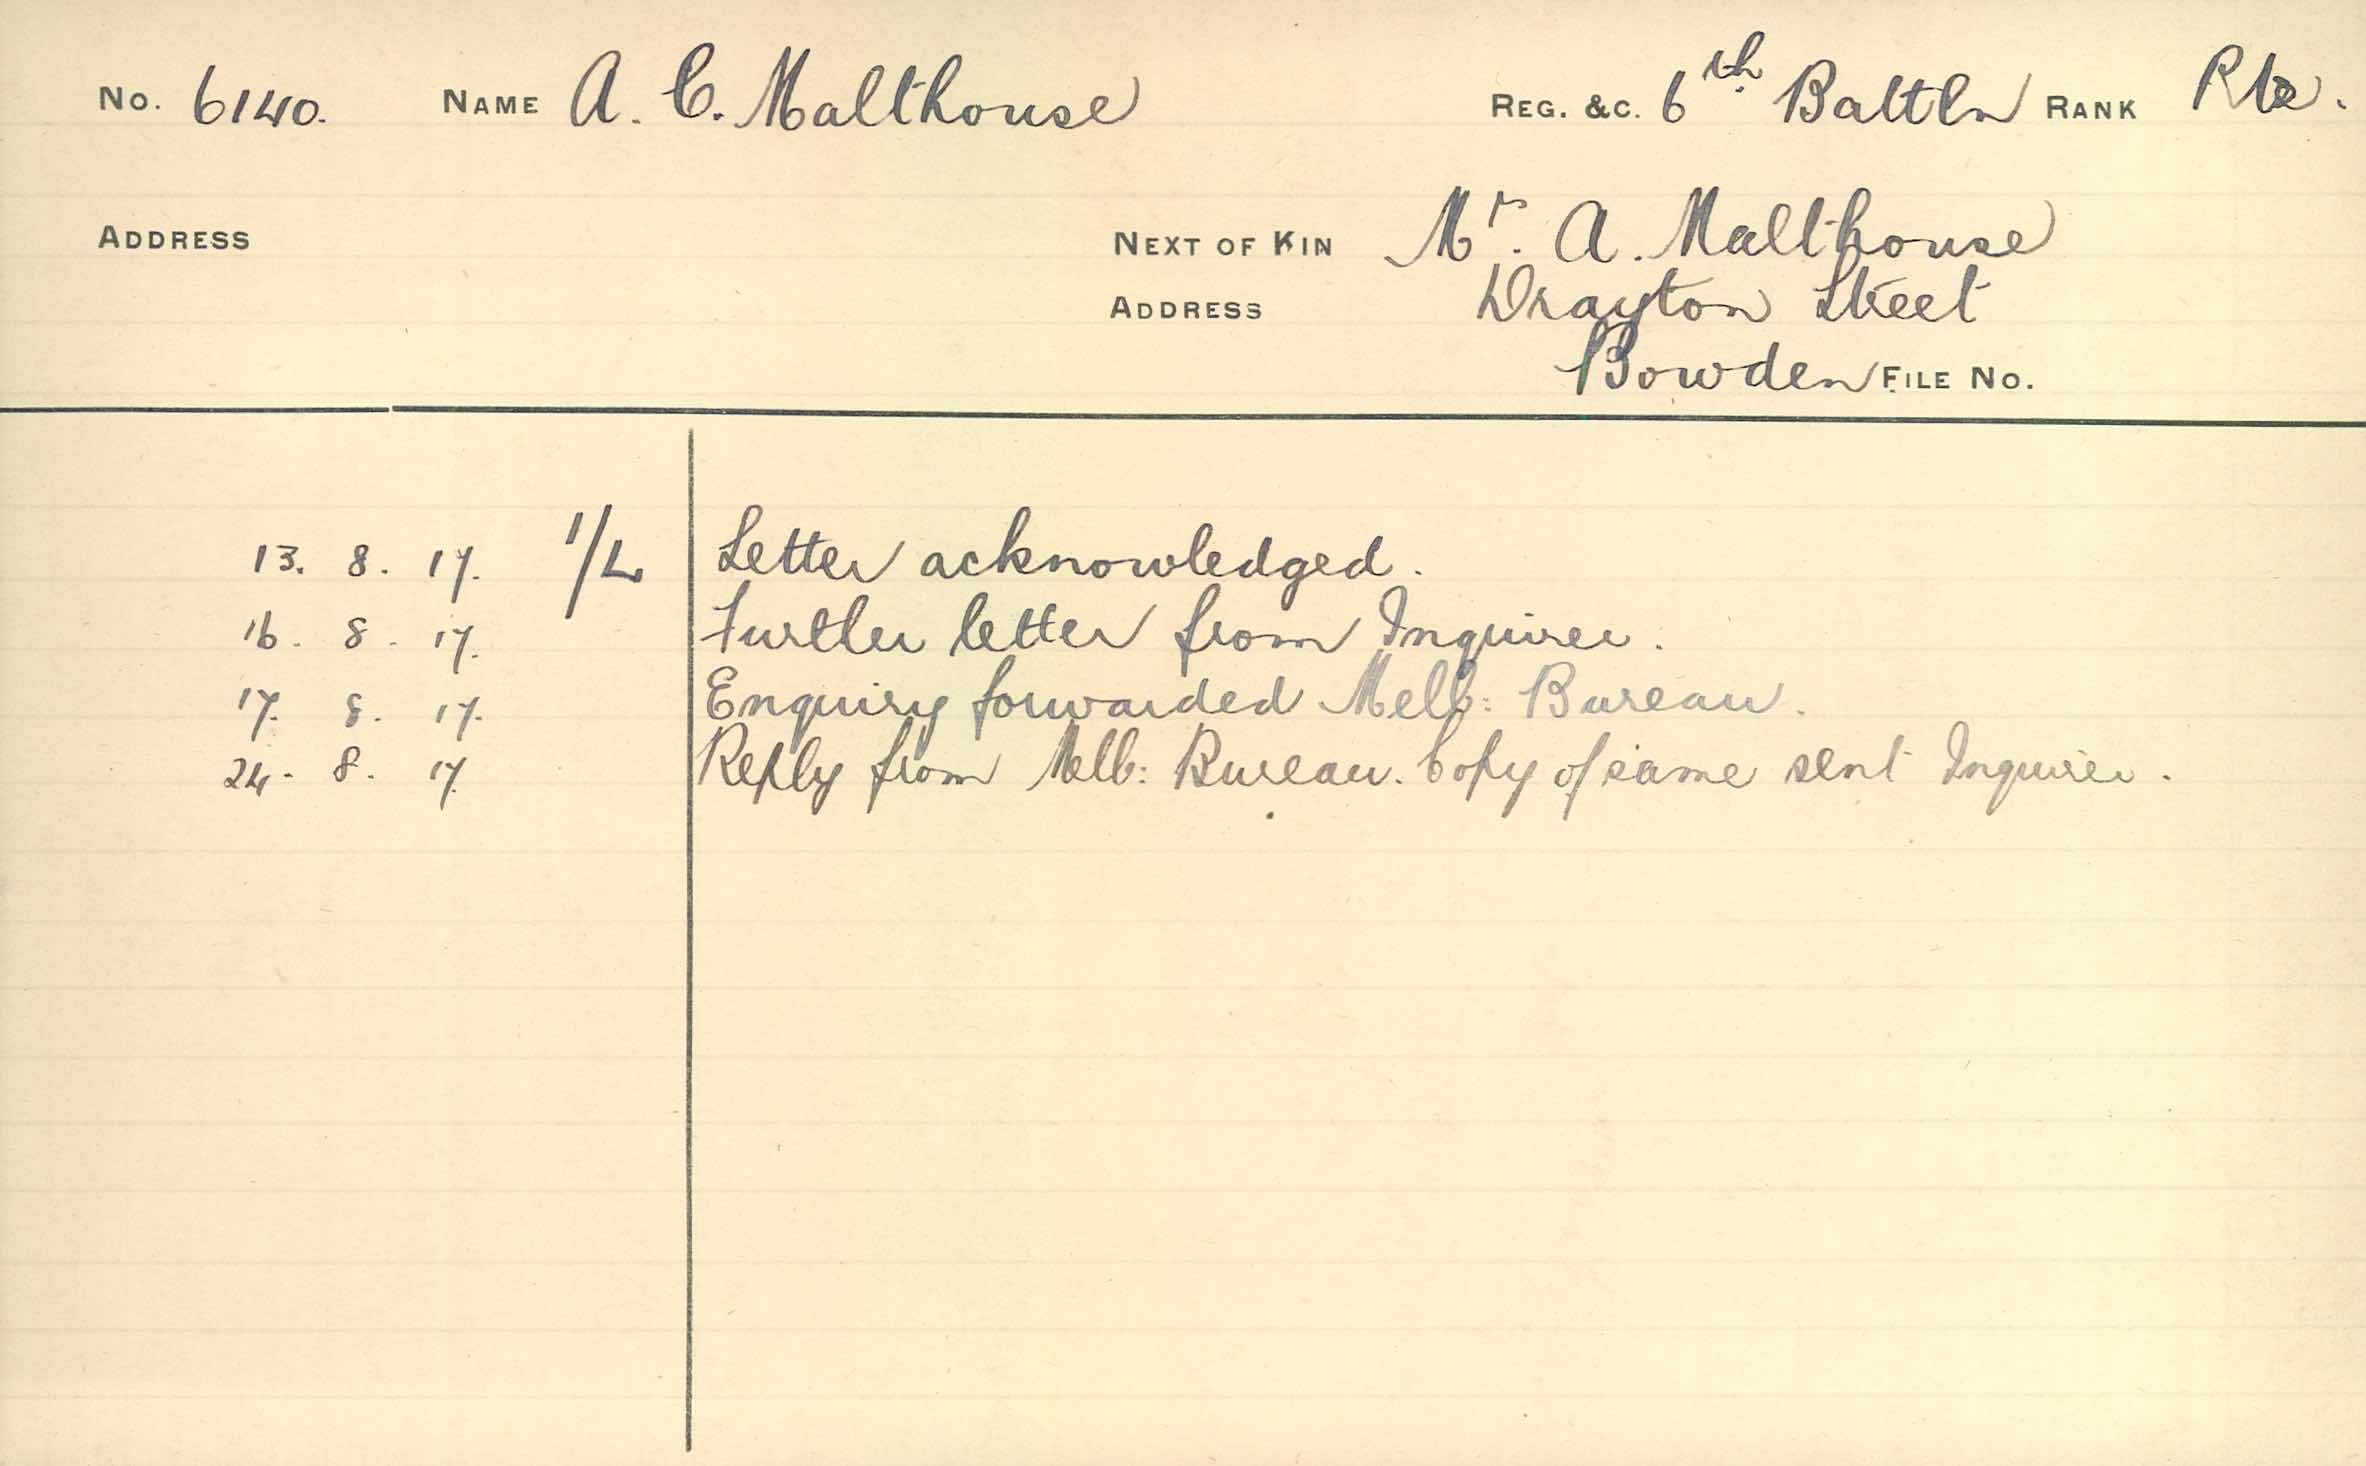 No. 6140. NAME A. C. Malthouse REG. &C. 6th Battln RANK Pte.
ADDRESS NEXT OF KIN Mr. A. Malthouse
ADDRESS Drayton Street
Bowden FILE No.
13. 8. 17. 1/L Letter acknowledged.
16. 8. 17. Further letter from Inquirer.
17. 8. 17. Enquiry forwarded Melb: Bureau.
24. 8. 17. Reply from Melb: Bureau. Copy of same sent Inquirer.